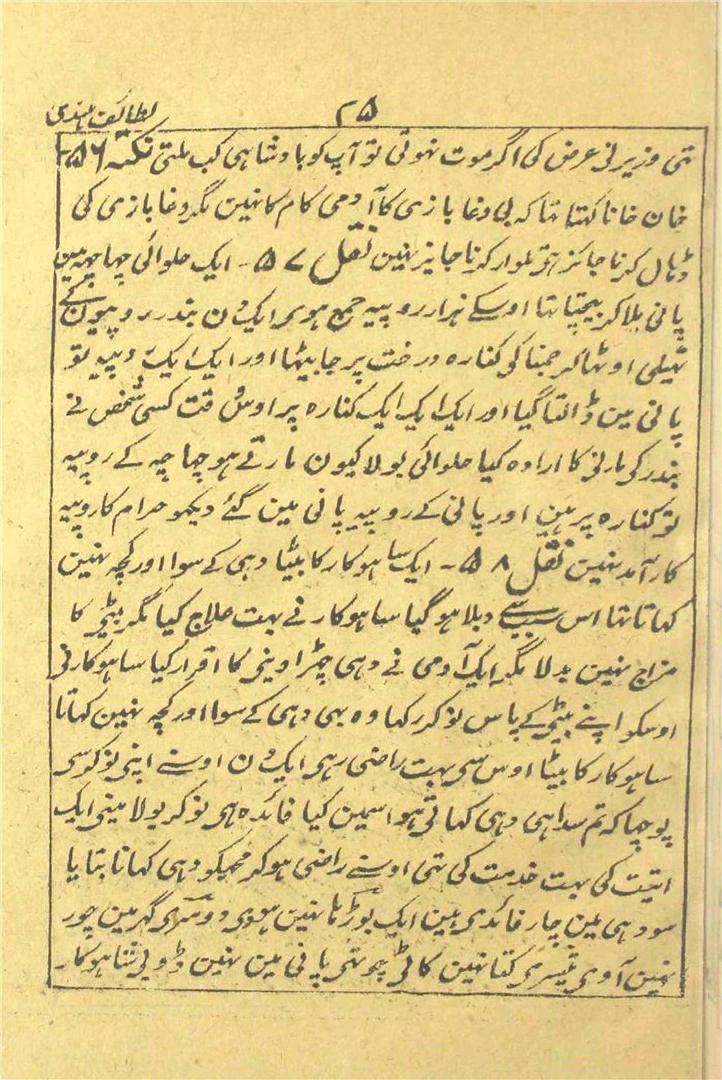 ۲۵
لطائف ہندی
تہی وزیر نی عرض کی اگر موت نہوتی تو آپ کو بادشاہی کب ملتی نکتہ ۵۶-
خان خانا کہتا تہا کہ بی دغا بازی کا آدمی کام کا نہین مگر دغا بازی کی
ڈہال کرنا جائز ہی تلوار کرنا جایز نہین نقل ۵۷ - ایک حلوائی چہاچہہ مین
پانی ملا کر بیچتا تہا اوسکے ہزار روپیہ جمع ہوی ایک دن بندر روپیون کے
تہیلی اوٹہا کر جمنا کی کنارہ درخت پر جا بیٹہا اور ایک ایک روپیہ تو
پانی مین ڈالتا گیا اور ایک ایک کنارہ پر اوس وقت کسی شخص نے
بندر کی مارنی کا ارادہ کیا حلوائی بولا کیون مارتے ہو چہاچہ کے روپیہ
تو کنارہ پر ہین اور پانی کے روپیہ پانی مین گئے دیکہو حرام کا روپیہ
کار آمد نہین نقل ۵۸ - ایک ساہوکار کا بیٹا دہی کے سوا اور کچہ نہین
کہاتا تہا اس سبب سے دبلا ہو گیا ساہوکار نے بہت علاج کیا مگر بیٹی کا
مزاج نہین بدلا مگر ایک آدمی نے دہی چہڑا دینی کا اقرار کیا ساہوکار نی
اوسکو اپنے بیٹی کے پاس نوکر رکہا وہ بہی دہی کے سوا اور کچہ نہین کہاتا
ساہوکار کا بیٹا اوس سی بہت راضی رہی ایک دن اوسنے اپنی نوکر سی
پوچہا کہ تم سدا ہی دہی کہاتی ہو اسمین کیا فائدہ ہی نوکر بولا مینی ایک
اتیت کی بہت خدمت کی تہی اوسنے راضی ہو کر مجہکو دہی کہانا بتایا
سو دہی مین چار فائدی ہین ایک بوڑہا نہین ہووی دوسری گہر مین چور
نہین آوی تیسری کتا نہین کاٹی چوتہی پانی مین نہین ڈوبی شاہوکار